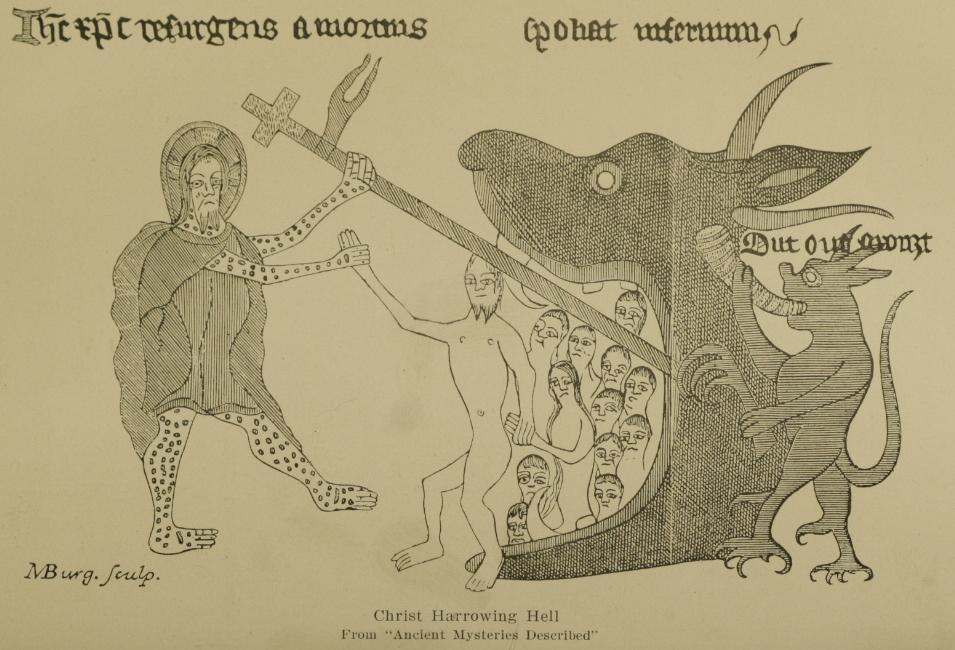 Ihc xp̄c resurgens a mortuis spoliat infernum
Out out aronzt
MBurg. sculp.
Christ Harrowing Hell
From "Ancient Mysteries Described"